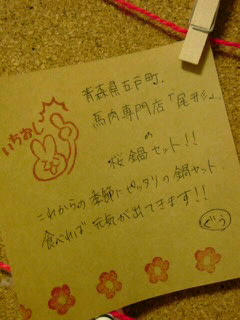 青森県五戸町、
馬肉専門店「尾形」
の
桜鍋セット!!
これからの季節にピッタリの鍋セット
食べれば元気が出てきます!!
ぐう
いちおし